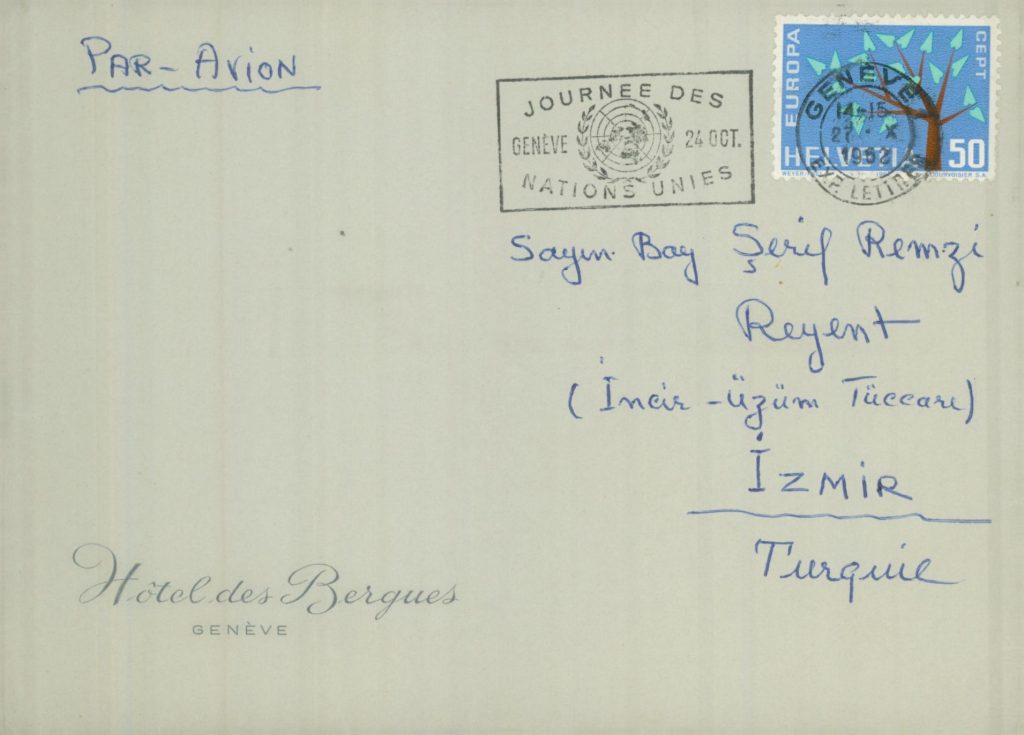 PAR-AVION
EUROPA
CEPT
HELVETIA 50
COURVOISIER S.A.
GENÈVE 1
14-15
27·X
1962
EXP. LETTRES
JOURNEE DES
GENÈVE 24 OCT.
NATIONS UNIES
Sayın Bay Şerif Remzi
Reyent
(İncir-üzüm Tüccarı)
İZMİR
Turquie
Hôtel des Bergues
GENÈVE